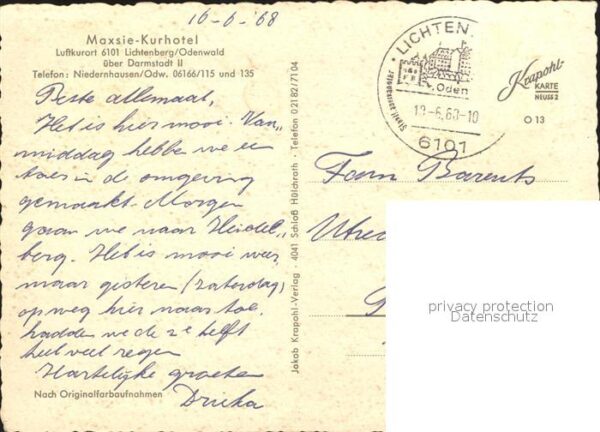 16-6-'68
Maxsie-Kurhotel
Luftkurort 6101 Lichtenberg/Odenwald
über Darmstadt II
Telefon: Niedernhausen/Odw. 06166/115 und 135
Beste allemaal,
Het is hier mooi. Van"
middag hebbe we een
toer in de omgeving
gemaakt. Morgen
gaan we naar Heidel"
berg. Het is mooi weer
maar gisteren (zaterdag)
op weg hier naar toe
hadden we de 2e helft
heel veel regen
Hartelijke groeten
Nach Originalfarbaufnahmen
Jakob Krapohl-Verlag · 4041 Schloß Hülchrath · Telefon 02182/7104
LICHTEN
Oden
6101
Krapohl-
KARTE
NEUSS 2
O 13
Fam Barents
Utrec
privacy protection
Datenschutz